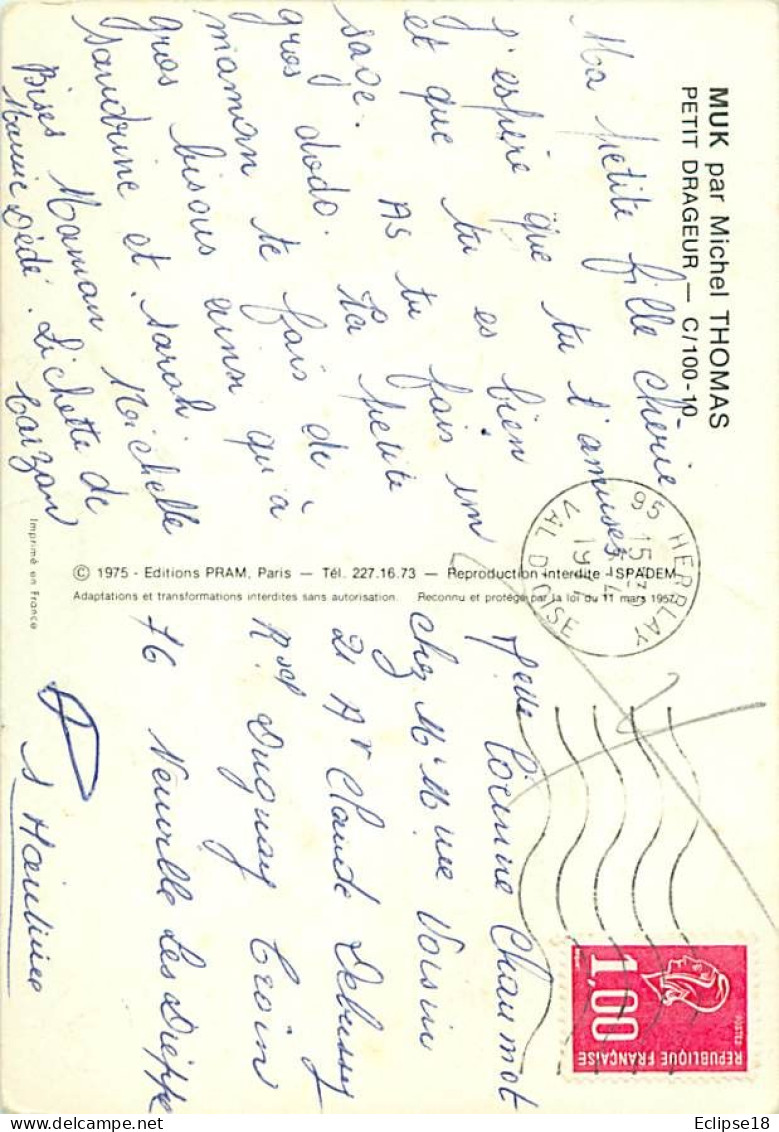 MUK par Michel THOMAS
PETIT DRAGEUR — C/100-10
Ma petite fille chérie
J'espère que tu t'amuses
et que tu es bien
sage. As tu fais un
gros dodo. Ta petite
maman te fais de
gros bisous ainsi qu'à
Sandrine et Sarah.
Bises Maman Michelle
Mamie Dédé. Lichette de
Tarzan
Imprimé en France
© 1975 - Editions PRAM, Paris — Tél. 227.16.73 — Reproduction interdite - SPADEM
Adaptations et transformations interdites sans autorisation. Reconnu et protégé par la loi du 11 mars 1957.
95 HERBLAY
15 H
VAL D'OISE
Melle Corinne Chaumot
chez Mr Mme Voisin
21 Ar Claude Debussy
Duguay Troin
76 Neuville Les Dieppe
1,00
POSTES
REPUBLIQUE FRANÇAISE
Eclipse18